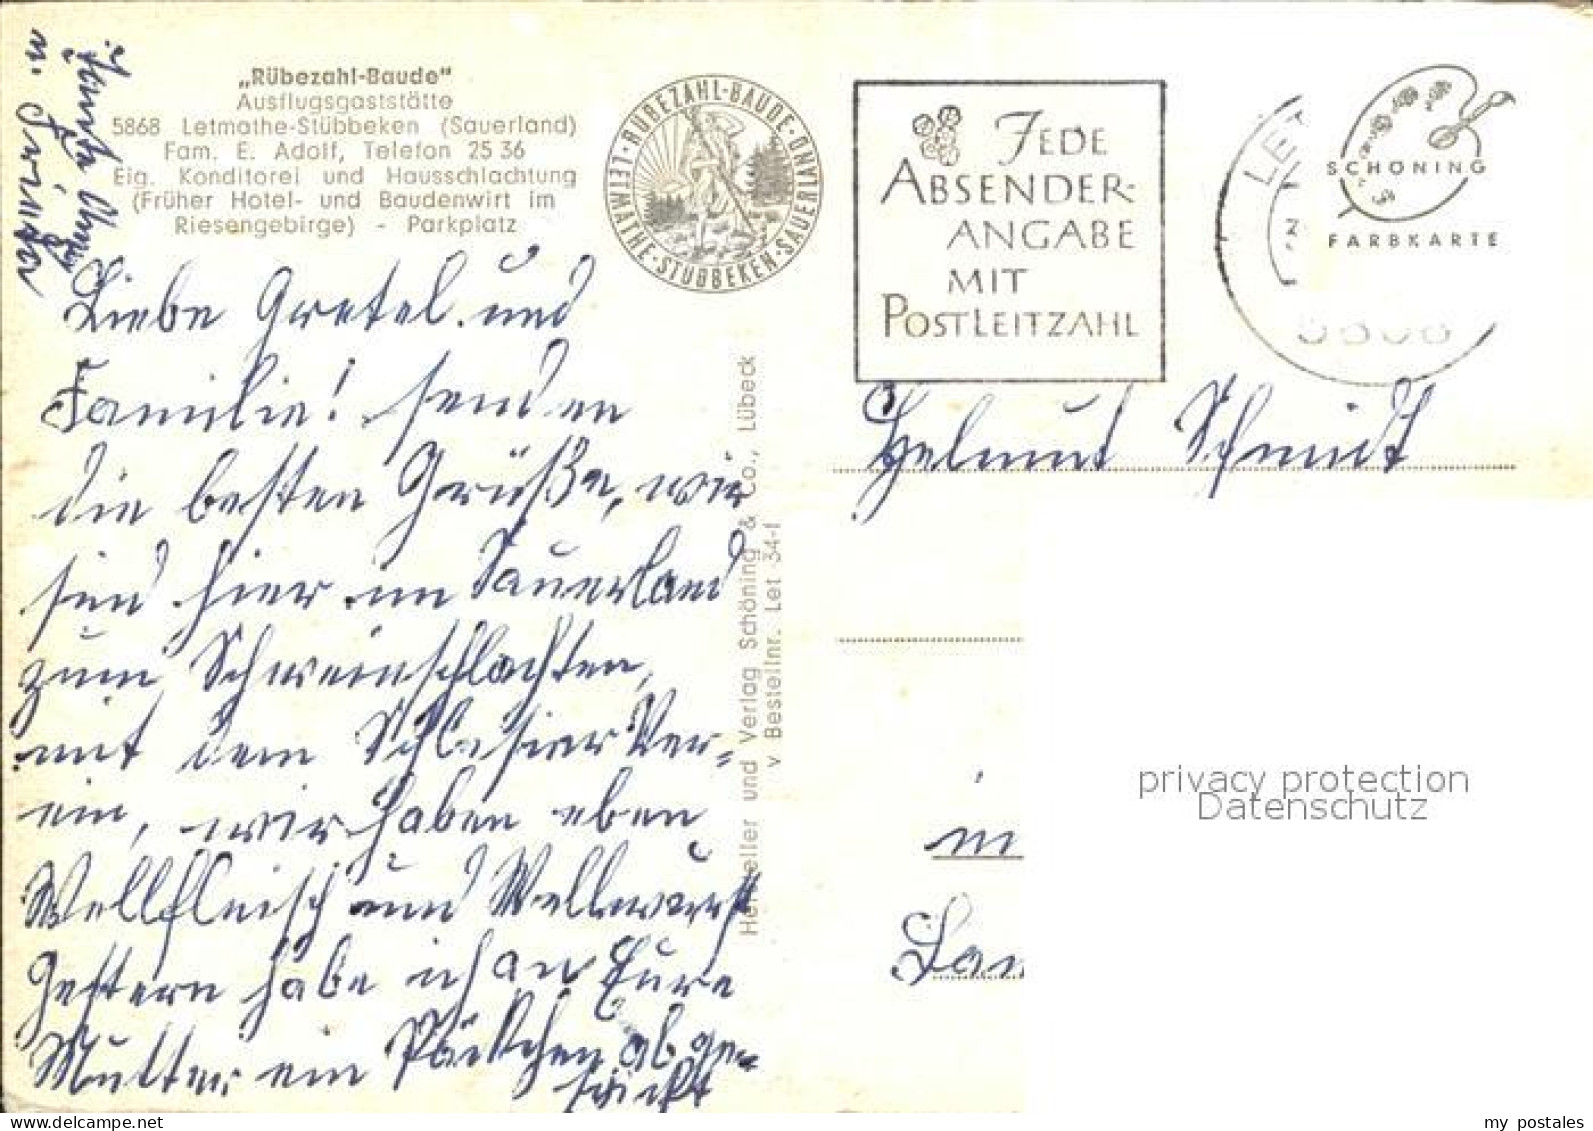 „Rübezahl-Baude"
Ausflugsgaststätte
5868 Letmathe-Stübbeken (Sauerland)
Fam. E. Adolf, Telefon 25 36
Eig. Konditorei und Hausschlachtung
(Früher Hotel- und Baudenwirt im
Riesengebirge) - Parkplatz
· RÜBEZAHL-BAUDE · SAUERLAND
LETMATHE-STÜBBEKEN
JEDE
ABSENDER-
ANGABE
MIT
POSTLEITZAHL
LET
SCHÖNING
FARBKARTE
5868
Liebe Gretel und
Familie! senden
die besten Grüße, wir
sind hier im Sauerland
zum Schweinschlachten,
mit dem Schlesier Ver-
ein, wir haben eben
Wellfleisch und Wellwurst
Gestern habe ich an Eure
Mutter ein Päckchen abge-
schickt
Hersteller und Verlag Schöning & Co., Lübeck
v Bestellnr. Let 34-I
Helmut Schmidt
in
privacy protection
Datenschutz
my postales